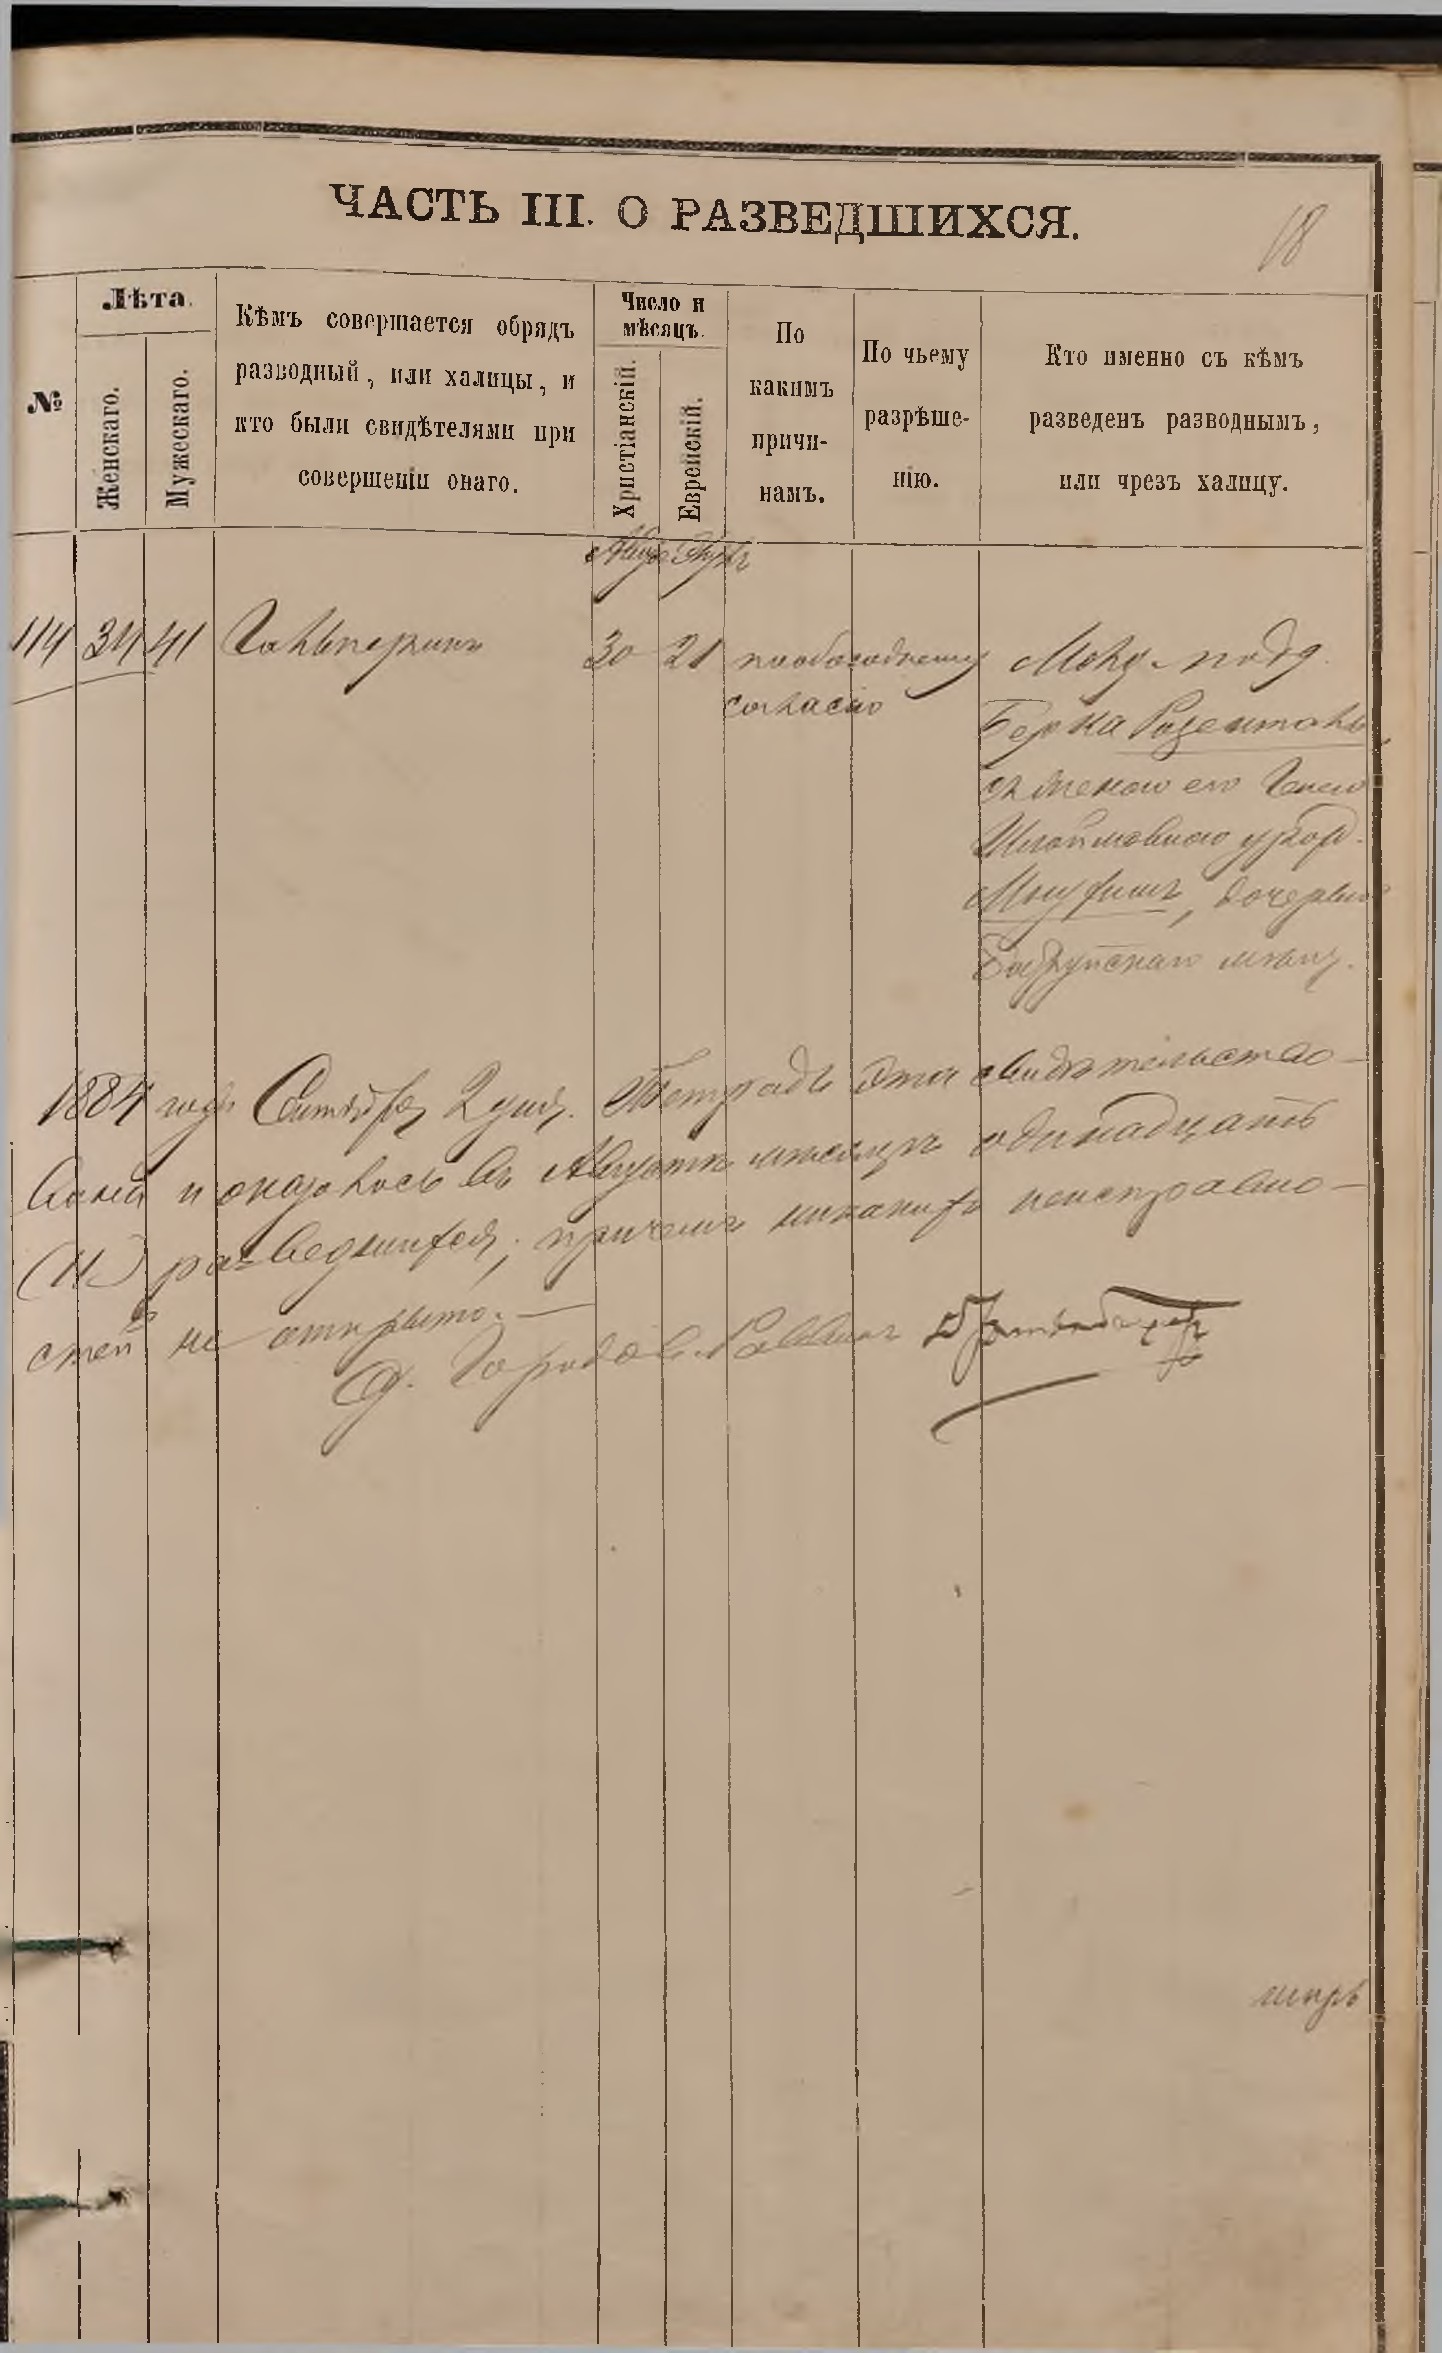 ЧАСТЬ III. О РАЗВЕДШИХСЯ.
18
№
Лѣта.
Женскаго.
Мужескаго.
Кѣмъ совершается обрядъ
разводный, или халицы, и
кто были свидѣтелями при
совершеніи онаго.
Число и
мѣсяцъ.
Христіанскій.
Еврейскій.
По
какимъ
причи-
намъ.
По чьему
разрѣше-
нію.
Кто именно съ къмъ
разведенъ разводнымъ,
или чрезъ халицу.
114 34 41 Гальперинъ 30 21 по обоюдному
согласію
Берка Розенталь
съ женою его
дочерью
1884 года Сентября 2 дня. Тетрадь эта свидѣтельство-
вана и оказалось въ Августѣ мѣсяцѣ одинадцать
(11) разведшихся, причемъ никакихъ неисправно-
стей не открыто. —
Городовой Раввинъ